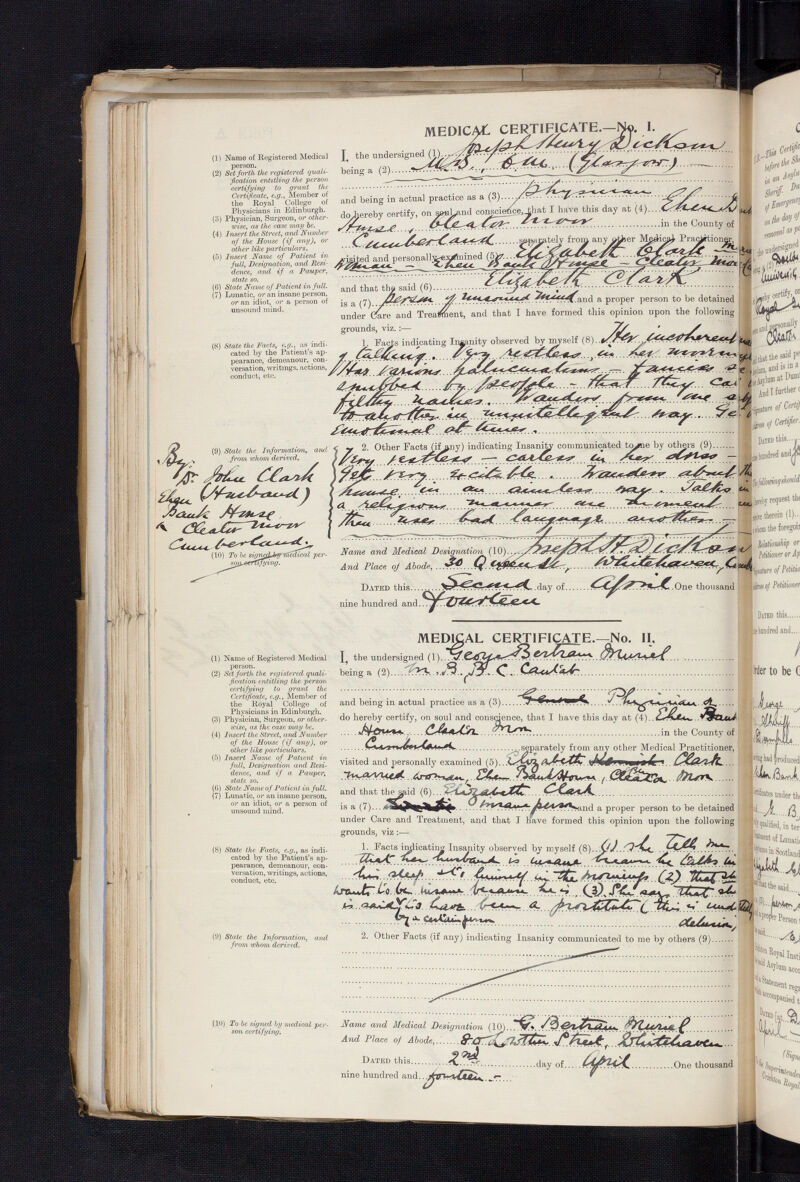 MEDICAL CERTIFICATE.—No. I.
(1) Name of Registered Medical
person.
(2) Set forth the registered quali-
fication entitling the person
certifying to grant the
Certificate, e.g., Member of
the Royal College of
Physicians in Edinburgh.
(3) Physician, Surgeon, or other-
wise, as the case may be.
(4) Insert the Street, and Number
of the House (if any), or
other like particulars.
(5) Insert Name of Patient in
full, Designation, and Resi-
dence, and if a Pauper,
state so.
(6) State Name of Patient in full.
(7) Lunatic, or an insane person,
or an idiot, or a person of
unsound mind.
(8) State the Facts, e.g., as indi-
cated by the Patient's ap-
pearance, demeanour, con-
versation, writings, actions,
conduct, etc.
(9) State the Information, and
from whom derived.
By
Dr. John Clark
(Husband)
Ehen
Bank House
Cleator Moor
Cumberland.
(10) To be signed by medical per-
son certifying.
I, the undersigned (1) Joseph Henry Dickson
being a (2) M.B., C.M. (Glasgow)
and being in actual practice as a (3) Physician
do hereby certify, on soul and conscience, that I have this day at (4) Ehen
House, Cleator Moor in the County of
Cumberland separately from any other Medical Practitioner,
visited and personally examined (5) Elizabeth Clark
woman - Ehen Bank House - Cleator Moor
and that the said (6) Elizabeth Clark
is a (7) person of unsound mind and a proper person to be detained
under Care and Treatment, and that I have formed this opinion upon the following
grounds, viz. :—
1. Facts indicating Insanity observed by myself (8) Her incoherent
of talking. Very restless in her
Has various hallucinations - fancies
snubbed by people - that they
filthy names. Wanders from one
to another in unintelligent way.
Emotional at times.
2. Other Facts (if any) indicating Insanity communicated to me by others (9)
Very restless - careless in her dress -
Gets very excitable. Wanders about
house in an aimless way. Talks in
a religious manner one moment
then uses bad language another.
Name and Medical Designation (10) Joseph H. Dickson
And Place of Abode, 30 Queen St., Whitehaven,
DATED this Second day of April One thousand
nine hundred and fourteen
MEDICAL CERTIFICATE.—No. II.
(1) Name of Registered Medical
person.
(2) Set forth the registered quali-
fication entitling the person
certifying to grant the
Certificate, e.g., Member of
the Royal College of
Physicians in Edinburgh.
(3) Physician, Surgeon, or other-
wise, as the case may be.
(4) Insert the Street, and Number
of the House (if any), or
other like particulars.
(5) Insert Name of Patient in
full, Designation, and Resi-
dence, and if a Pauper,
state so.
(6) State Name of Patient in full.
(7) Lunatic, or an insane person,
or an idiot, or a person of
unsound mind.
(8) State the Facts, e.g., as indi-
cated by the Patient's ap-
pearance, demeanour, con-
versation, writings, actions,
conduct, etc.
(9) State the Information, and
from whom derived.
(10) To be signed by medical per-
son certifying.
I, the undersigned (1) George Bertram Muriel
being a (2) M.B., B.C. Cantab
and being in actual practice as a (3) General Physician
do hereby certify, on soul and conscience, that I have this day at (4) Ehen Bank
House Cleator Moor in the County of
Cumberland separately from any other Medical Practitioner,
visited and personally examined (5) Elizabeth Clark
married woman, Ehen Bank House, Cleator Moor
and that the said (6) Elizabeth Clark
is a (7) Lunatic insane person and a proper person to be detained
under Care and Treatment, and that I have formed this opinion upon the following
grounds, viz :—
1. Facts indicating Insanity observed by myself (8) (1) she tells me
that her husband is insane because he talks in
his sleep & to himself in the mornings (2) that she
wants to be insane because he is. (3) She says that she
is said by a certain person to have been a prostitute (this is
delusion)
2. Other Facts (if any) indicating Insanity communicated to me by others (9)
Name and Medical Designation (10) G. Bertram Muriel
And Place of Abode, 80 Lowther Street, Whitehaven
DATED this 2nd day of April One thousand
nine hundred and fourteen.-